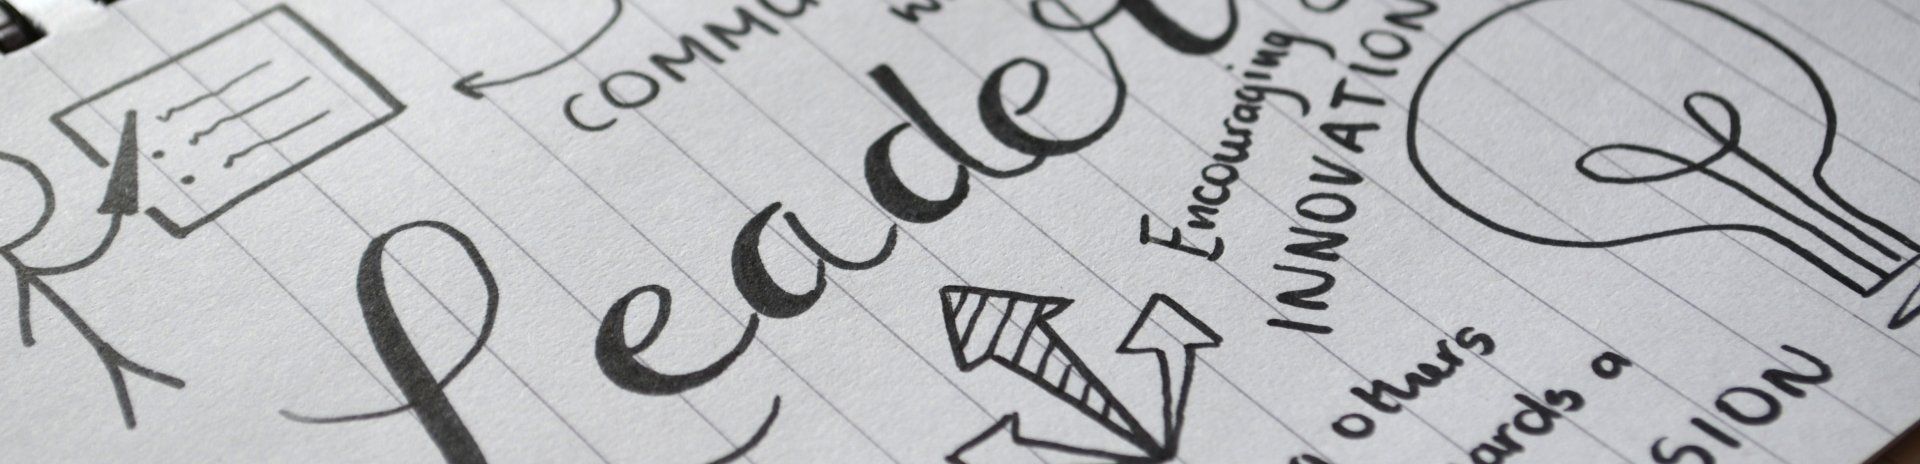 COMMU
Leader
Encouraging
INNOVATION
others
ards a
SION